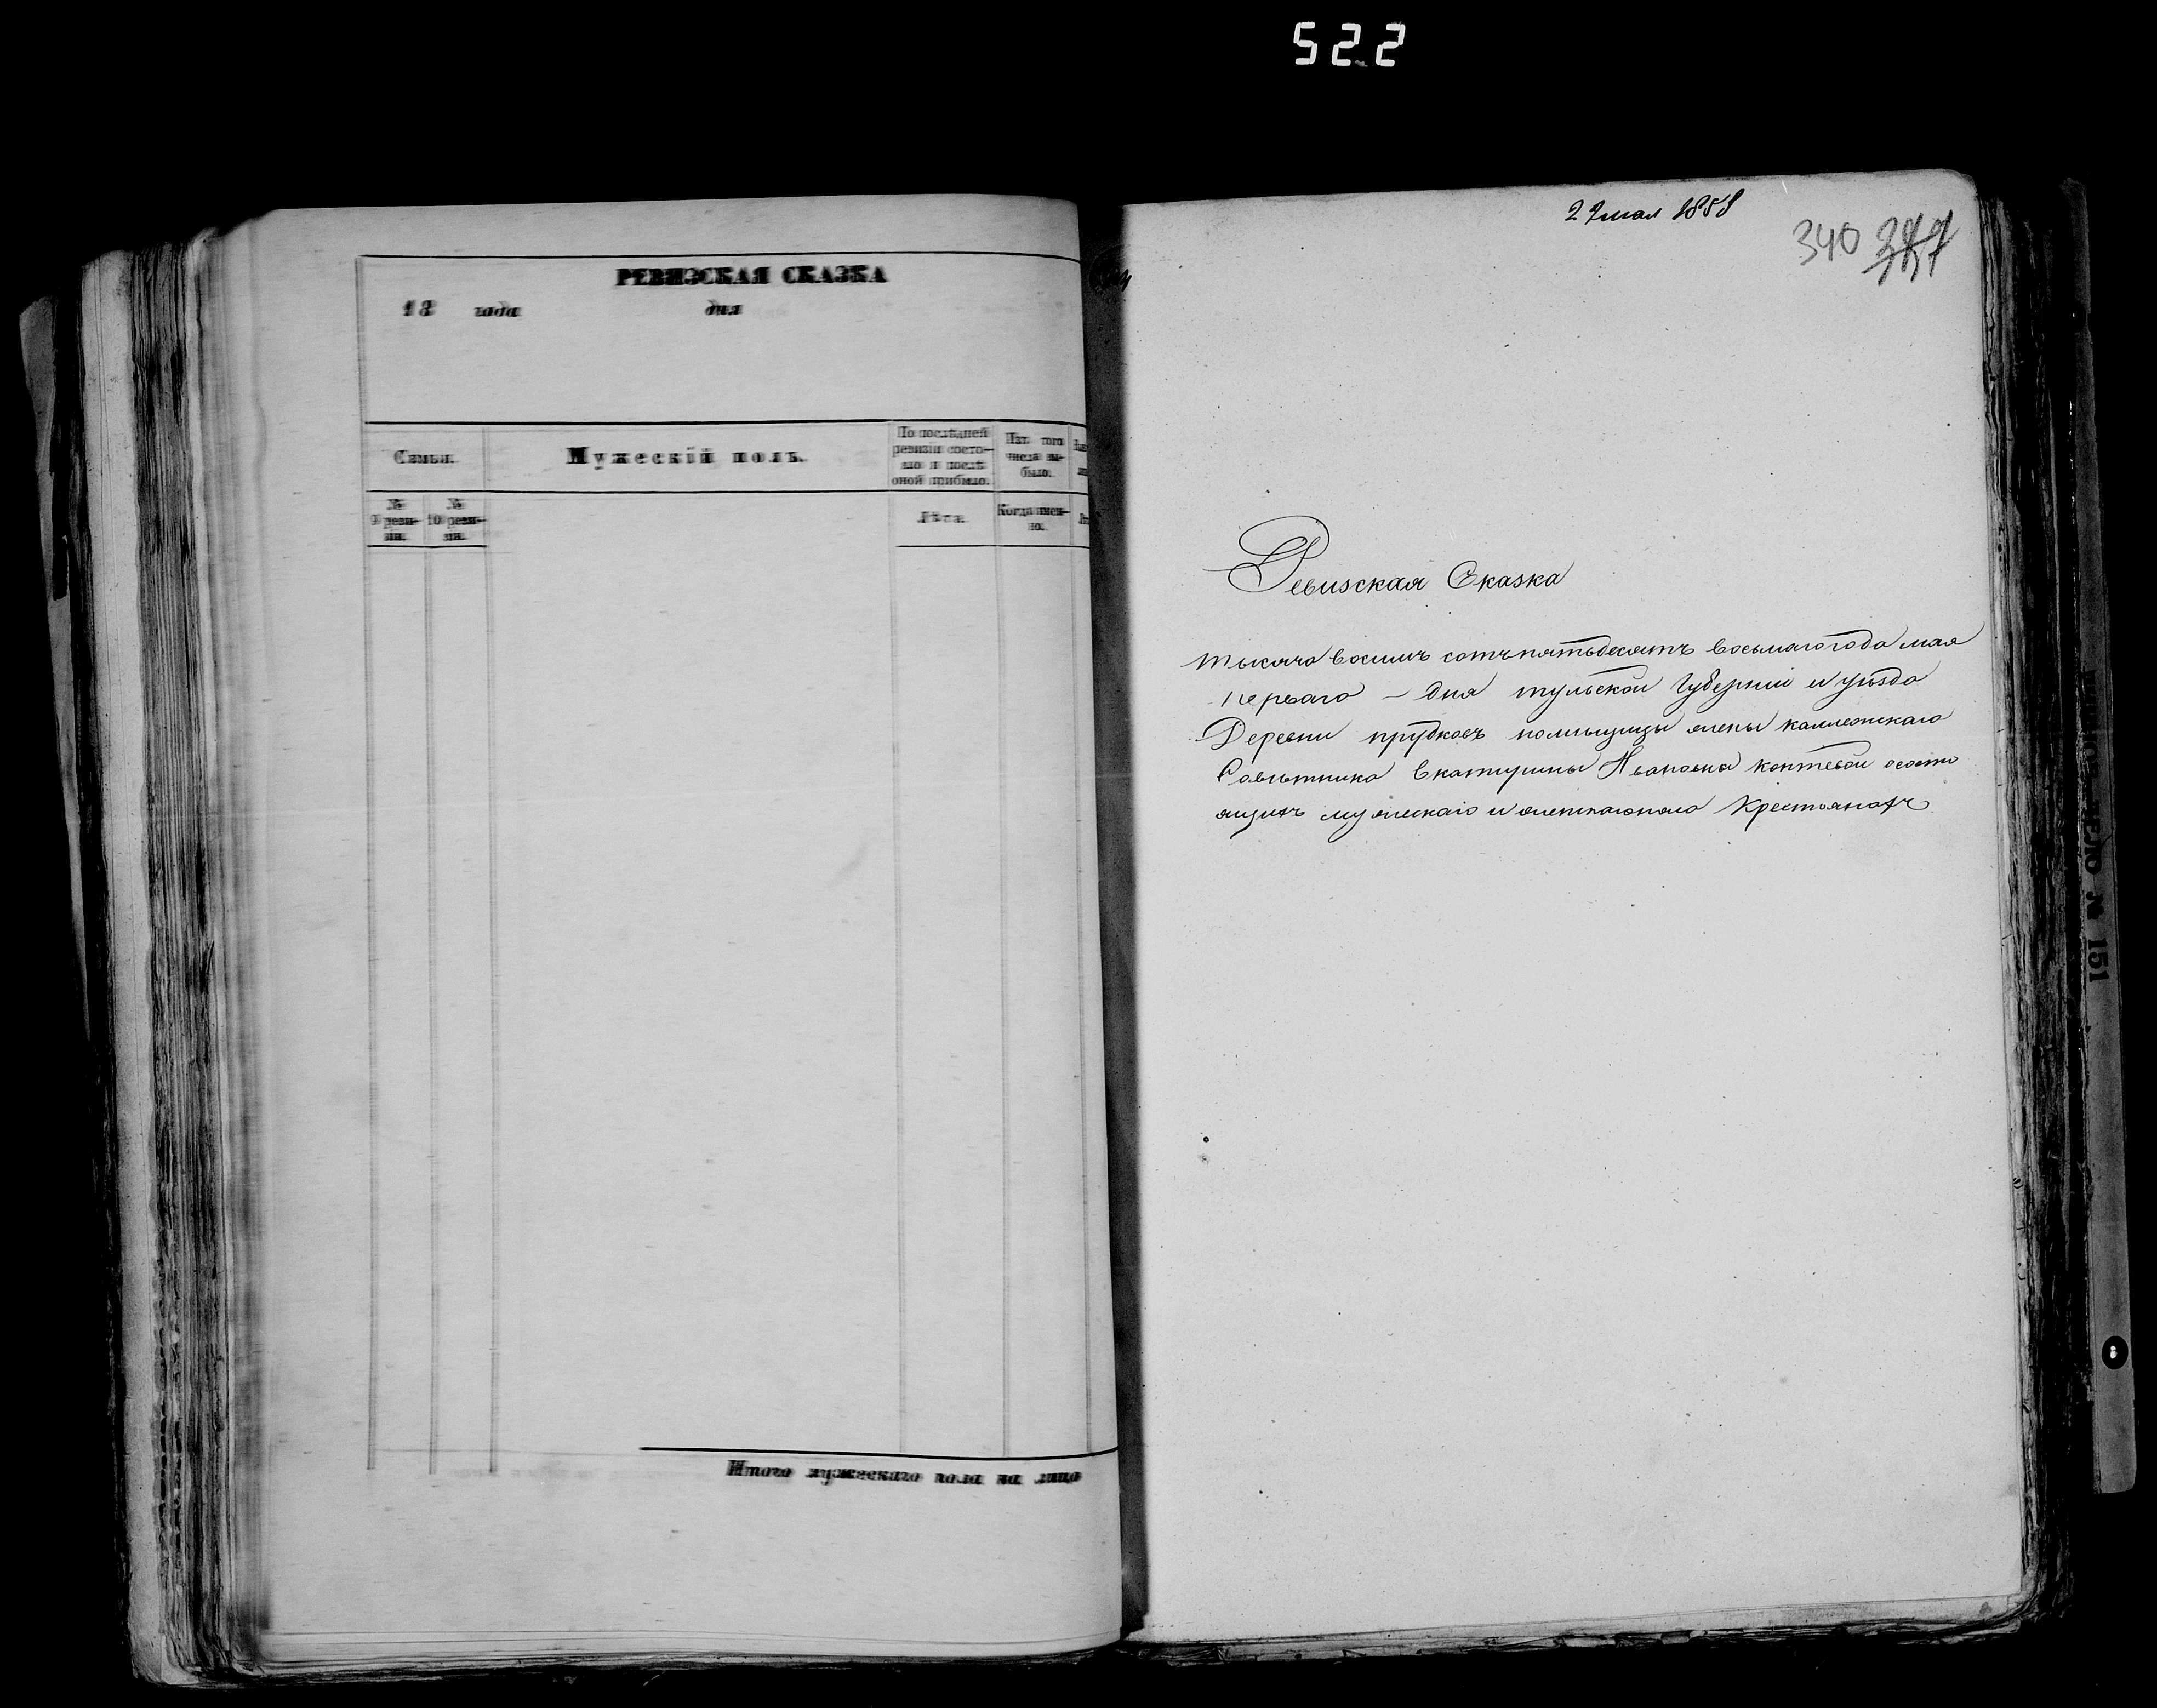 522
РЕВИЗСКАЯ СКАЗКА
18 года дня
Семьи.
Мужескій полъ.
По послѣдней
ревизіи состо-
яло и послѣ
оной прибыло.
Изъ того
числа вы-
было.
№
9 реви-
зіи.
№
10 реви-
зіи.
Лѣта.
Когда имен-
но.
Итого мужескаго пола на лицо
22 мая 1858
340
Ревизская Сказка
тысяча восимъ сотъ пятьдесятъ восьмаго года мая
перваго — дня тульской Губерніи и уѣзда
Деревни прудковъ помѣщицы жены каллежскаго
Савѣтника Екатирины Ивановна коптевой осостo
ящихъ мужескаго и женскаго пола Крестьянахъ
№ 151